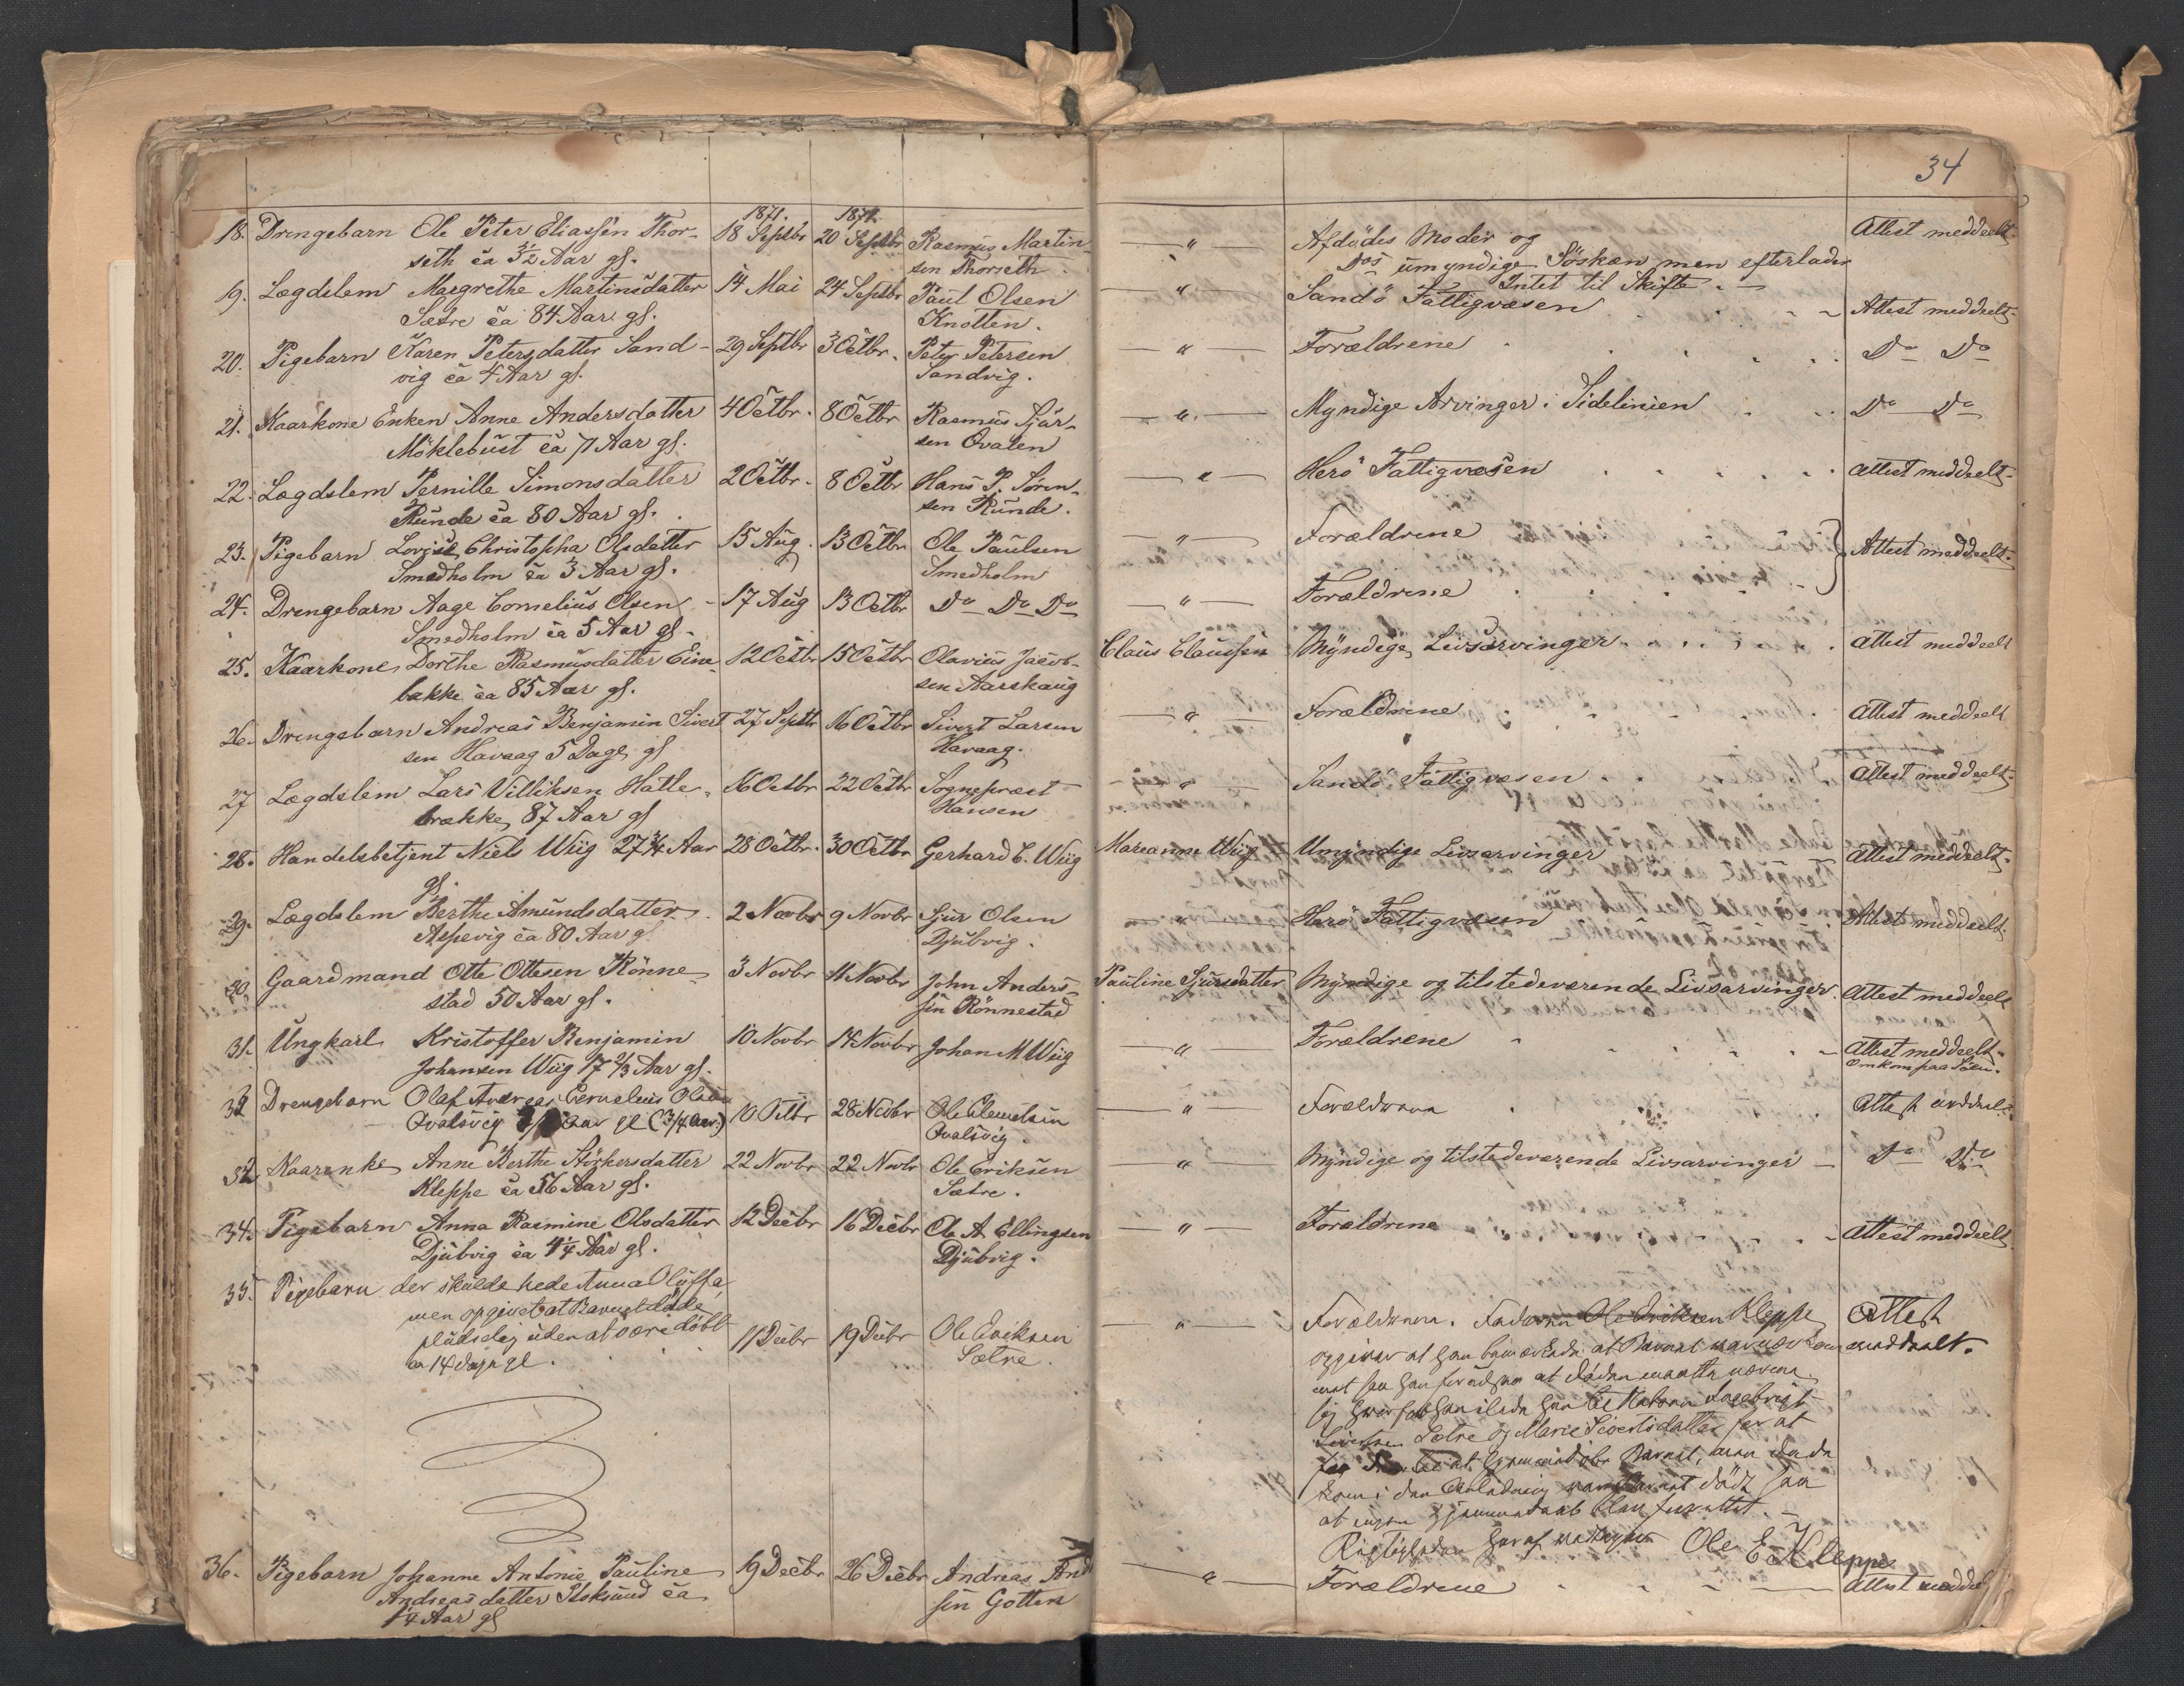 34
1871. 1871.
18. Drengebarn Ole Peter Eliassen Thor- 18 Septbr 20 Septbr Rasmus Martin- — " — Afdødes Moder og Attest meddeelt.
seth ca 3½ Aar gl. sen Thorseth. Dos umyndige Söskæn men efterlader
Intet til Skifte. —
19. Lægdslem Margrethe Martinsdatter 14 Mai 24 Septbr Paul Olsen — " — Sandö Fattigvæsen Attest meddeelt.
Sætre ca 84 Aar gl. Knotten.
20. Pigebarn Karen Petersdatter Sand- 29 Septbr 3 Octbr. Peter Petersen — " — Forældrene Do Do
vig ca 4 Aar gl. Sandvig.
21. Kaarkone Enken Anne Andersdatter 4 Octbr. 8 Octbr Rasmus Sjur- — " — Myndige Arvinger i Sidelinien Do Do
Möklebust ca 71 Aar gl. sen Ovaten
22. Lægdslem Pernille Simonsdatter 2 Octbr. 8 Octbr Hans P. Sören- — " — Herö Fattigvæsen Attest meddeelt.
Runde ca 80 Aar gl. sen Runde.
23. Pigebarn Lovise Christopha Olsdatter 15 Aug. 13 Octbr Ole Paulsen — " — Forældrene Attest meddeelt.
Smedholm ca 3 Aar gl. Smedholm
24. Drengebarn Aage Cornelius Olsen 17 Aug 13 Octbr Do Do Do — " — Forældrene
Smedholm ca 5 Aar gl.
25. Kaarkone Dorthe Rasmusdatter Eine- 12 Octbr 15 Octbr Olavius Jacob- Claus Claussen Myndige Livsarvinger Attest meddeelt
bakke ca 85 Aar gl. sen Aarskaug
26. Drengebarn Andreas Benjamin Sivert 27 Septbr 16 Octbr Sivert Larsen — " — Forældrene Attest meddeelt
sen Havaag 5 Dage gl Havaag.
27 Lægdslem Lars Villiksen Hatle- 16 Octbr 22 Octbr Sognepræst — " — Sandö Fattigvæsen Attest meddeelt.
brække 87 Aar gl Hansen
28. Handelsbetjent Niels Wiig 27¾ Aar 28 Octbr. 30 Octbr Gerhard C. Wiig Mareanne Wiig Umyndige Livsarvinger Attest meddeelt.
gl.
29. Lægdslem Berthe Amundsdatter 2 Novbr 9 Novbr Sjur Olsen — " — Herö Fattigvæsen Attest meddeelt.
Aspevig ca 80 Aar gl Djubvig.
30. Gaardmand Otte Ottesen Rönne- 3 Novbr 11 Novbr John Anders- Pauline Sjursdatter Myndige og tilstedeværende Livsarvinger. Attest meddeelt
stad 50 Aar gl. sen Rönnestad
31. Ungkarl Kristoffer Benjamin 10 Novbr 14 Novbr Johan M Wiig — " — Forældrene Attest meddeelt.
Johansen Wiig 17 2/3 Aar gl. Omkom paa Söen.
32 Drengebarn Olaf Andreas Cornelius Olsen 10 Octbr 28 Novbr Ole Clemetsen — " — Forældrene Attest meddeelt.
Ovalsvig Aar gl (3/4 Aar) Ovalsvig.
32 Kaarenke Anne Berthe Störkersdatter 22 Novbr 22 Novbr Ole Eriksen — " — Myndige og tilstedeværende Livsarvinger — Do Do
Kleppe ca 56 Aar gl. Sætre.
34. Pigebarn Anna Rasmine Olsdatter 12 Decbr 16 Decbr Ole A. Ellingsen — " — Forældrene Attest meddeelt
Djubvig ca 4¼ Aar gl. Djubvig.
35. Pigebarn der skulde hede Anna Oluffa,
men opgivet at Barnet döde
pludselig uden at være döbt 11 Decbr 19 Decbr Ole Eriksen — " — Forældrene. Faderen Ole Eriksen Kleppe Attest
ca 14 dage gl. Sætre. opgiver at han bemærkede at Barnet var meddeelt.
saa han forudsaa at döden maatte nærme
sig hvorfor han ilede hen til Naboen Ingebrigt
Sivertsen Sætre og Marie Sivertsdatter for at
faa at hjemmedöbe Barnet, men da de
kom i den Anledning var Barnet dödt saa
at ingen hjemmedaab blev foretaget.
Rigtigheden heraf Ole E Kleppe
36. Pigebarn Johanne Antonie Pauline 19 Decbr 26 Decbr Andreas And — " — Forældrene Attest meddeelt
Andreasdatter Stoksund ca sen Gotten
¼ Aar gl